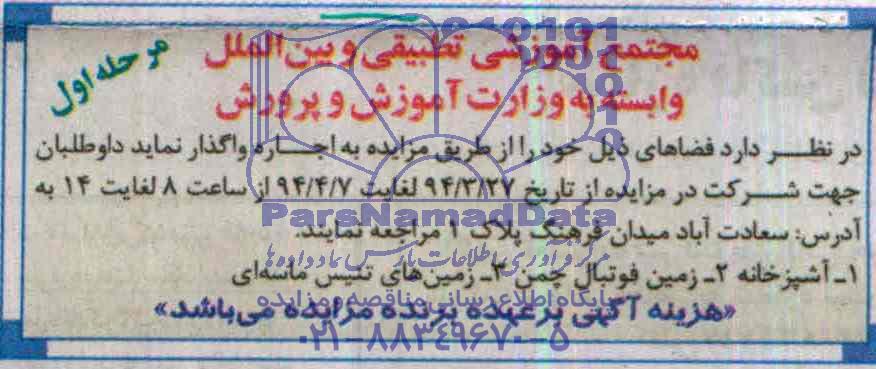 مرحله اول
مجتمع آموزشی تطبیقی و بین الملل
وابسته به وزارت آموزش و پرورش
در نظر دارد فضاهای ذیل خود را از طریق مزایده به اجاره واگذار نماید داوطلبان
جهت شرکت در مزایده از تاریخ ۹۴/۳/۲۷ لغایت ۹۴/۴/۷ از ساعت ۸ لغایت ۱۴ به
آدرس: سعادت آباد میدان فرهنگ پلاک ۱ مراجعه نمایند.
۱ـ آشپزخانه ۲ـ زمین فوتبال چمن ۳ـ زمین های تنیس ماسه‌ای
«هزینه آگهی برعهده برنده مزایده می‌باشد»
ParsNamadData
مرکز فرآوری اطلاعات پارس نماد داده ها
پایگاه اطلاع رسانی مناقصه و مزایده
۰۲۱-۸۸۳۴۹۶۷۰-۵